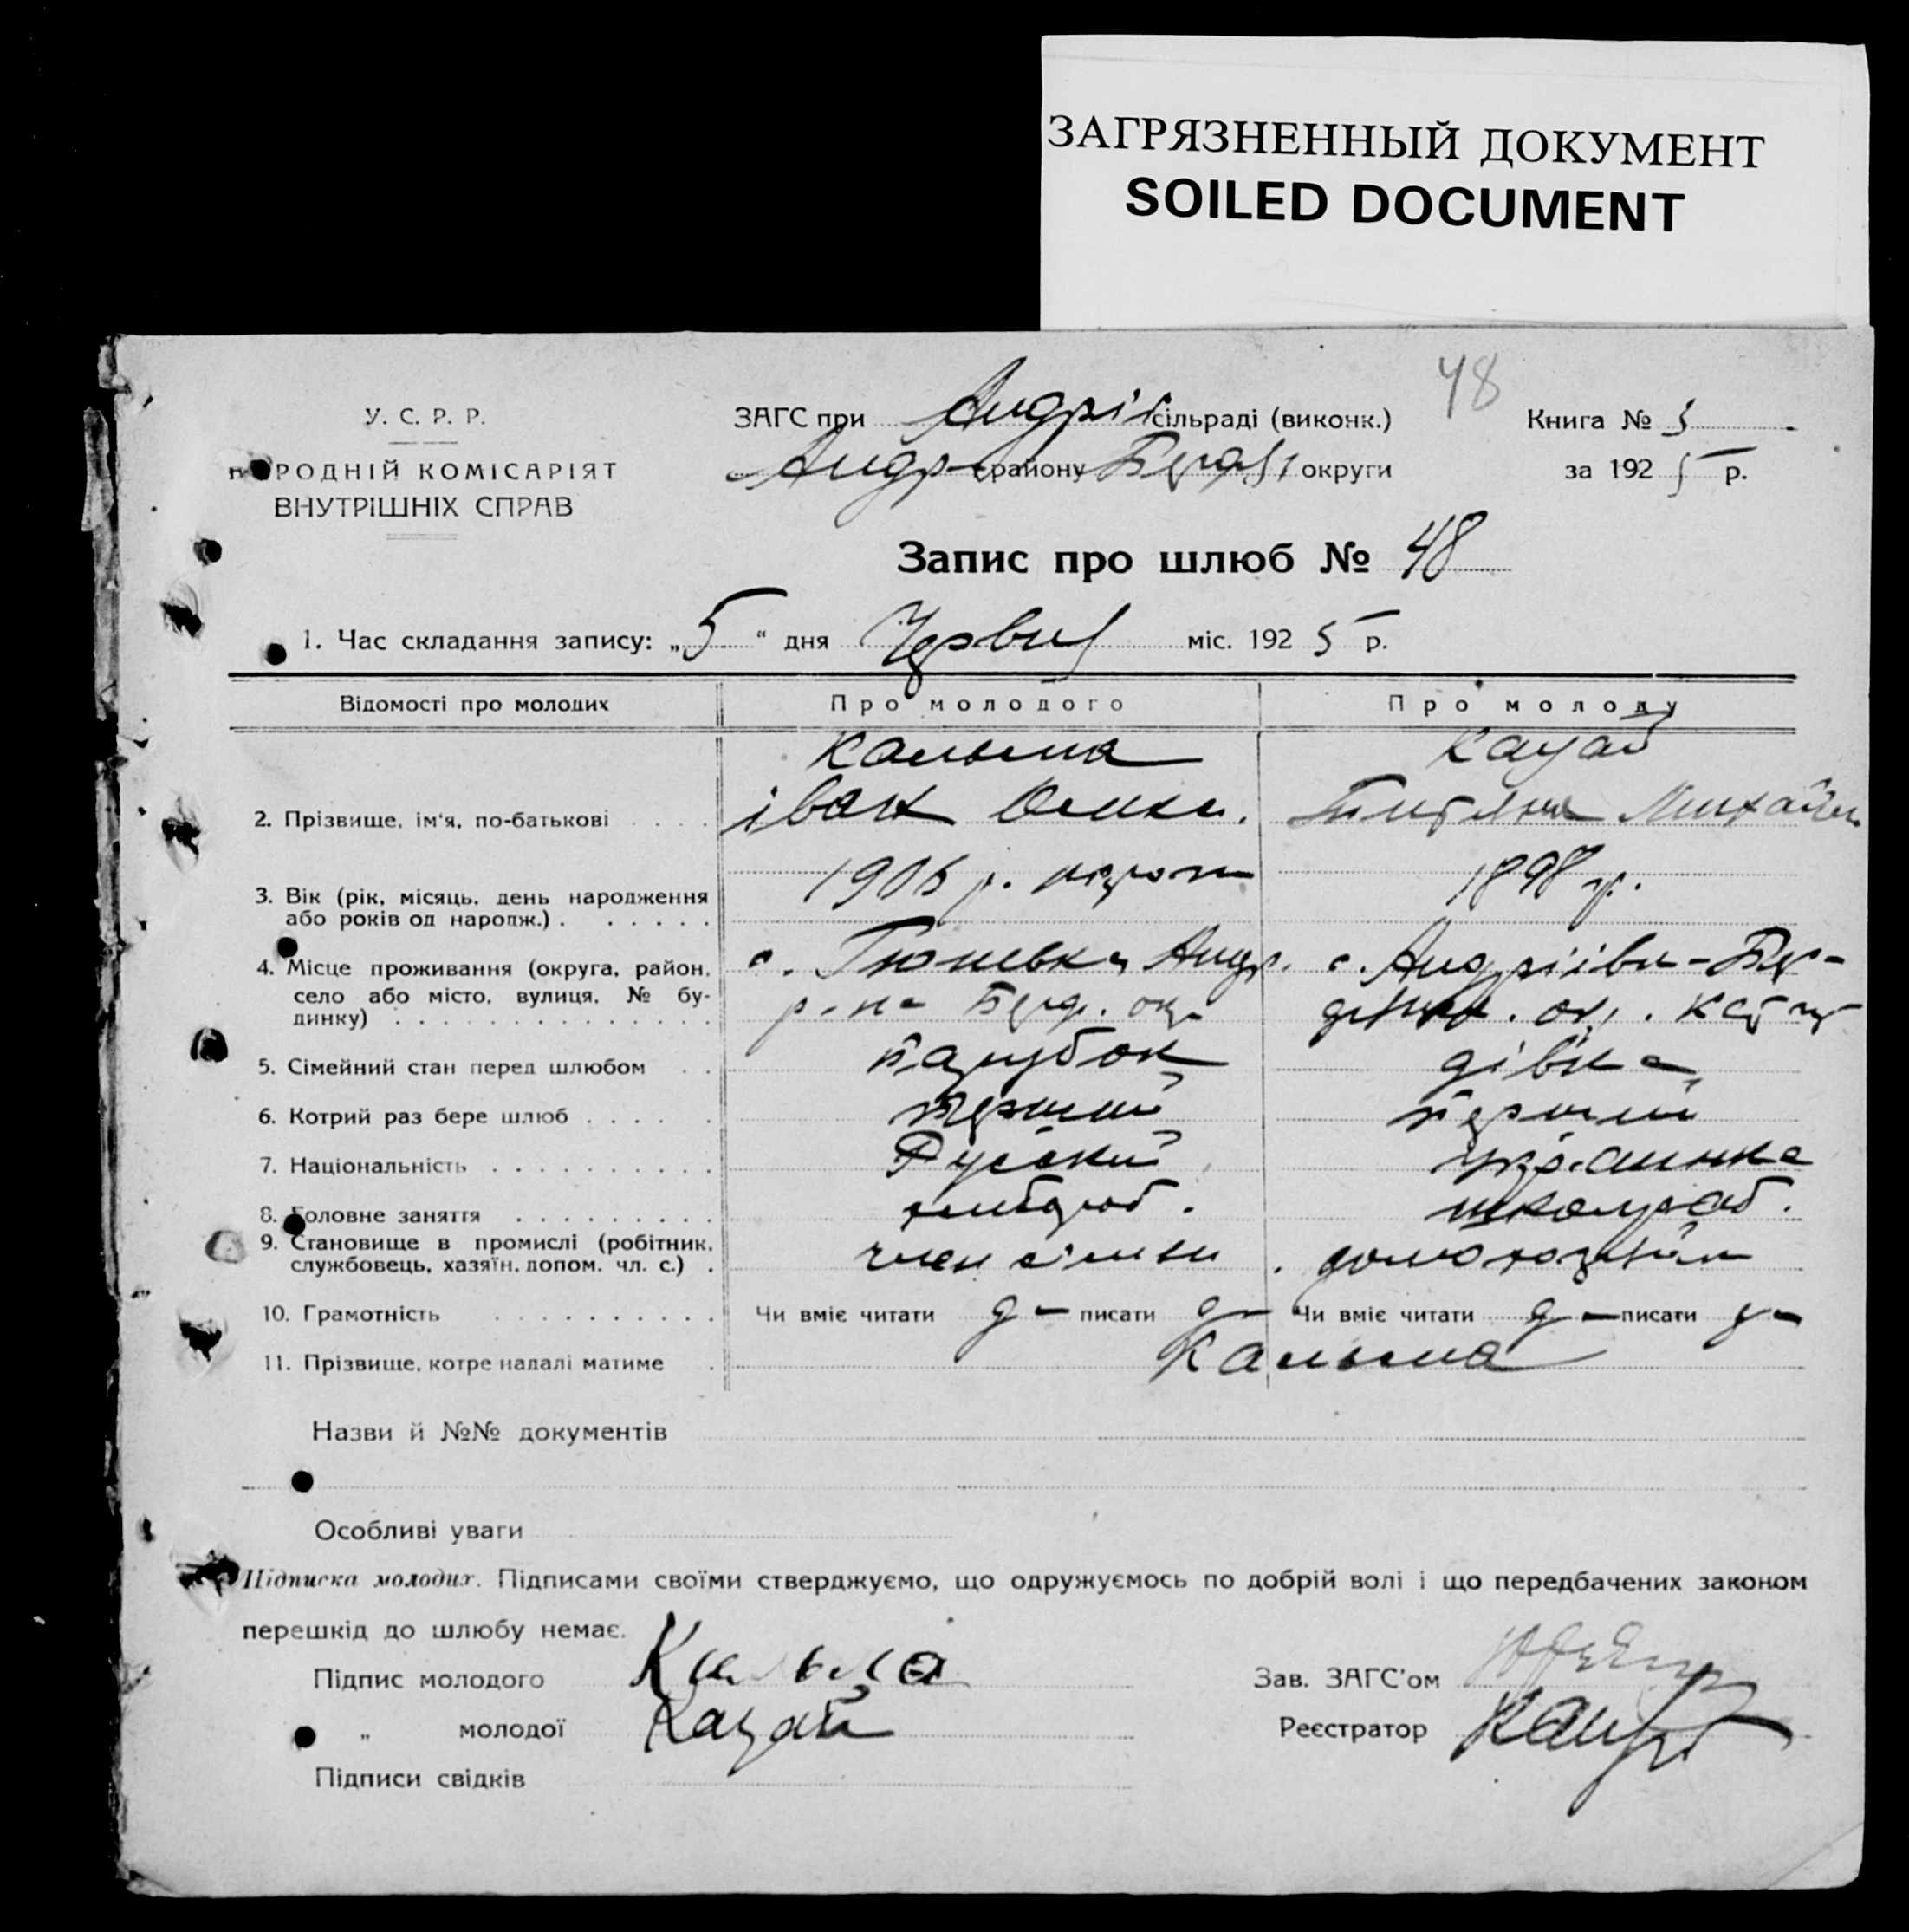 ЗАГРЯЗНЕННЫЙ ДОКУМЕНТ
SOILED DOCUMENT
48
У. С. Р. Р.
РОДНІЙ КОМІСАРІЯТ
ВНУТРІШНІХ СПРАВ
ЗАГС при Андріїв сільраді (виконк.)
Андр району Бердян округи
Книга № 3
за 1925 р.
Запис про шлюб № 48
1. Час складання запису: „5" дня Червня міс. 1925 р.
Відомості про молодих Про молодого Про молоду
Кальма Кацай
2. Прізвище, ім'я, по-батькові Іван Титяна Михайл
3. Вік (рік, місяць, день народження 1906 р. 1898 р.
або років од народж.)
4. Місце проживання (округа, район, с. Андр. с. Андріівка-Бер-
село або місто, вулиця, № бу- р-на Берд. окр дянск. окр.
динку)
5. Сімейний стан перед шлюбом парубок дівка
6. Котрий раз бере шлюб первий первий
7. Національність Руський украинка
8. Головне заняття хлібороб. школраб.
9. Становище в промислі (робітник, член сімьи
службовець, хазяїн, допом. чл. с.)
10. Грамотність Чи вміє читати д- писати д- Чи вміє читати д- писати д-
11. Прізвище, котре надалі матиме Кальма
Назви й №№ документів
Особливі уваги
Підписка молодих. Підписами своїми стверджуємо, що одружуємось по добрій волі і що передбачених законом
перешкід до шлюбу немає.
Підпис молодого Кальма
Зав. ЗАГС'ом
„ молодої Кацай
Реєстратор
Підписи свідків